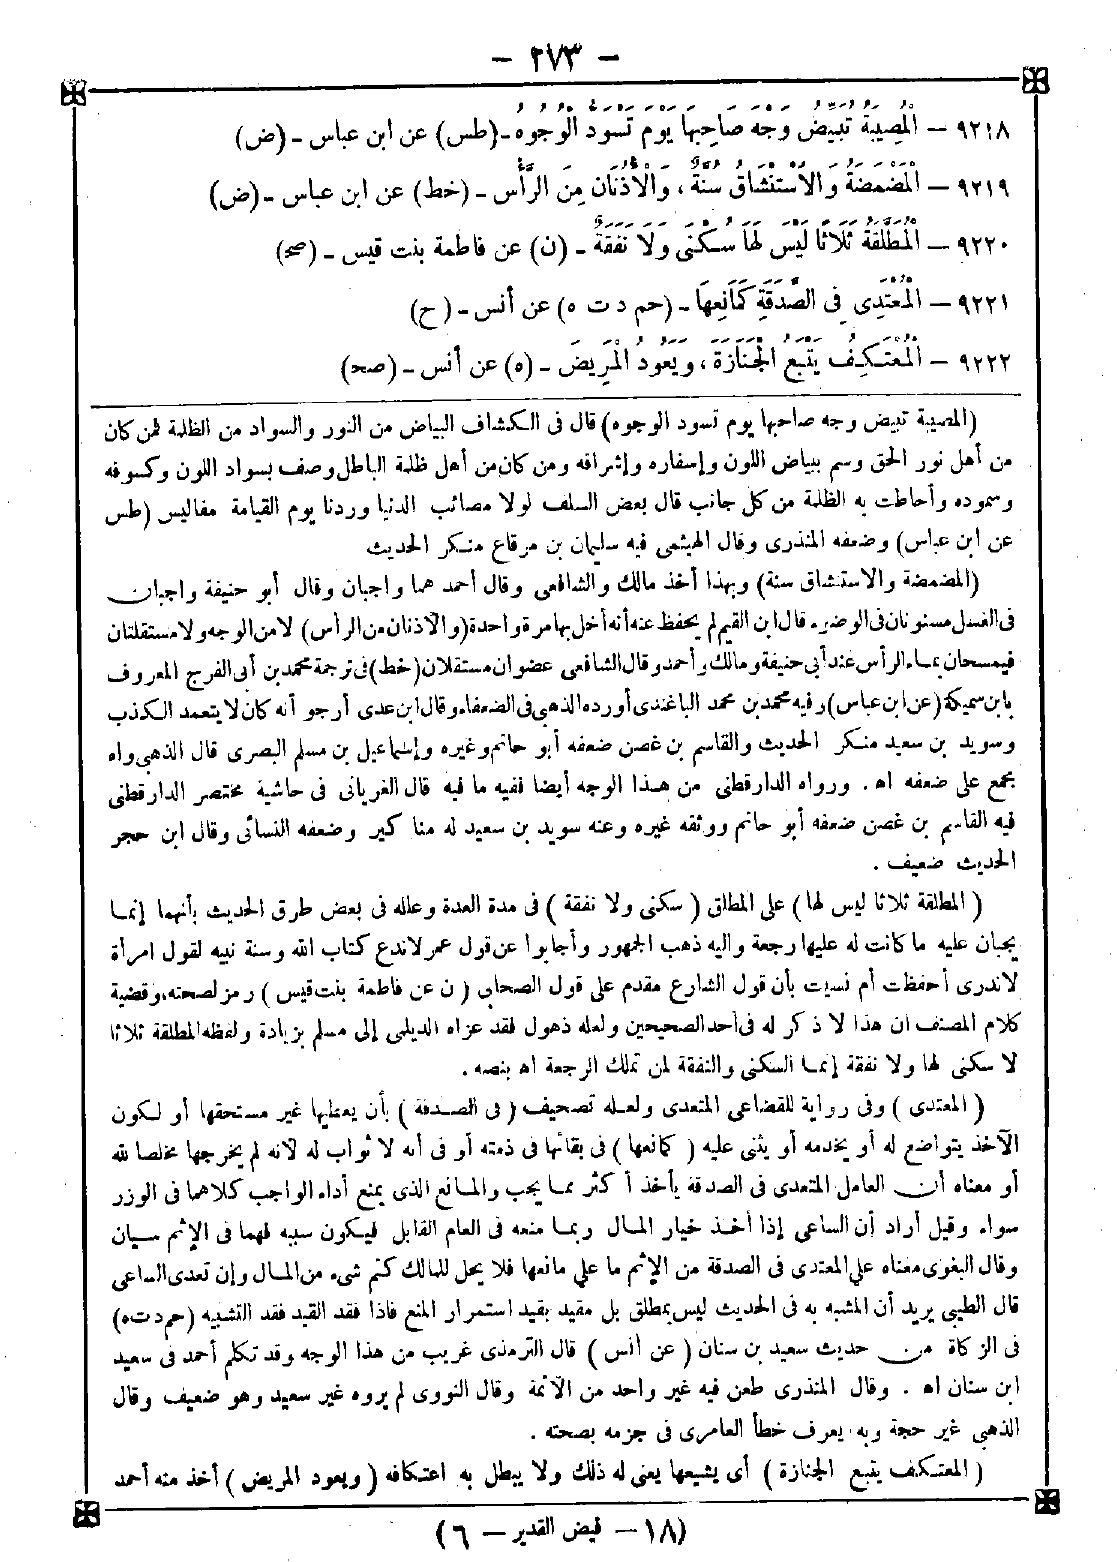 - ٢٧٣ -
٩٢١٨ - الْمُصِيبَةُ تُبَيِّضُ وَجْهَ صَاحِبِهَا يَوْمَ تَسْوَدُّ الْوُجُوهُ - (طس) عن ابن عباس - (ض)
٩٢١٩ - الْمَضْمَضَةُ وَالاسْتِنْشَاقُ سُنَّةٌ، وَالْأُذُنَانِ مِنَ الرَّأْسِ - (خط) عن ابن عباس - (ض)
٩٢٢٠ - الْمُطَلَّقَةُ ثَلَاثًا لَيْسَ لَهَا سُكْنَى وَلَا نَفَقَةٌ - (ن) عن فاطمة بنت قيس - (صح)
٩٢٢١ - الْمُعْتَدِى فِى الصَّدَقَةِ كَمَانِعِهَا - (حم د ت ه) عن أنس - (ح)
٩٢٢٢ - الْمُعْتَكِفُ يَتْبَعُ الْجَنَازَةَ، وَيَعُودُ الْمَرِيضَ - (ه) عن أنس - (صح)
(المصيبة تبيض وجه صاحبها يوم تسود الوجوه) قال فى الكشاف البياض من النور والسواد من الظلمة فمن كان
من أهل نور الحق وسم ببياض اللون وإسفاره وإشراقه ومن كان من أهل ظلمة الباطل وصف بسواد اللون وكسوفه
وسموده وأحاطت به الظلمة من كل جانب قال بعض السلف لولا مصائب الدنيا وردنا يوم القيامة مفاليس (طس
عن ابن عباس) وضعفه المنذرى وقال الهيثمى فيه سليمان بن مرقاع منكر الحديث
(المضمضة والاستنشاق سنة) وبهذا أخذ مالك والشافعى وقال أحمد هما واجبان وقال أبو حنيفة واجبان
فى الغسل مسنونان فى الوضوء قال ابن القيم لم يحفظ عنه أنه أخل بها مرة واحدة (والأذنان من الرأس) لا من الوجه ولا مستقلتان
فيمسحان بماء الرأس عند أبى حنيفة ومالك وأحمد وقال الشافعى عضوان مستقلان (خط) فى ترجمة محمد بن أبى الفرج المعروف
بابن سميكة (عن ابن عباس) وفيه محمد بن محمد الباغندى أورده الذهبى فى الضعفاء وقال ابن عدى أرجو أنه كان لا يتعمد الكذب
وسويد بن سعيد منكر الحديث والقاسم بن غصن ضعفه أبو حاتم وغيره وإسماعيل بن مسلم البصرى قال الذهبى واه
مجمع على ضعفه اه . ورواه الدارقطنى من هذا الوجه أيضا ففيه ما فيه قال الغريانى فى حاشية مختصر الدارقطنى
فيه القاسم بن غصن ضعفه أبو حاتم ووثقه غيره وعنه سويد بن سعيد له مناكير وضعفه النسائى وقال ابن حجر
الحديث ضعيف .
( المطلقة ثلاثا ليس لها ) على المطلق ( سكنى ولا نفقة ) فى مدة العدة وعلله فى بعض طرق الحديث بأنهما إنما
يجبان عليه ما كانت له عليها رجعة واليه ذهب الجمهور وأجابوا عن قول عمر لا ندع كتاب الله وسنة نبيه لقول امرأة
لا ندرى أحفظت أم نسيت بأن قول الشارع مقدم على قول الصحابى ( ن عن فاطمة بنت قيس ) رمز لصحته، وقضية
كلام المصنف ان هذا لا ذكر له فى أحد الصحيحين ولعله ذهول فقد عزاه الديلمى إلى مسلم بزيادة ولفظه المطلقة ثلاثا
لا سكنى لها ولا نفقة إنما السكنى والنفقة لمن تملك الرجعة اه بنصه .
( المعتدى ) وفى رواية للقضاعى المتعدى ولعله تصحيف ( فى الصدقة ) بأن يعطيها غير مستحقها أو لكون
الآخذ يتواضع له أو يخدمه أو يثنى عليه ( كمانعها ) فى بقائها فى ذمته أو فى أنه لا ثواب له لأنه لم يخرجها مخلصا لله
أو معناه أن العامل المتعدى فى الصدقة يأخذ أكثر مما يجب والمانع الذى يمنع أداء الواجب كلاهما فى الوزر
سواء وقيل أراد أن الساعى إذا أخذ خيار المال ربما منعه فى العام القابل فيكون سببه فهما فى الإثم سيان
وقال البغوى معناه على المعتدى فى الصدقة من الإثم ما على مانعها فلا يحل للمالك كتم شىء من المال وإن تعدى الساعى
قال الطيبى يريد أن المشبه به فى الحديث ليس بمطلق بل مقيد بقيد استمرار المنع فاذا فقد القيد فقد التشبيه (حم د ت ه)
فى الزكاة من حديث سعيد بن سنان ( عن أنس ) قال الترمذى غريب من هذا الوجه وقد تكلم أحمد فى سعيد
ابن سنان اه . وقال المنذرى طعن فيه غير واحد من الأئمة وقال النووى لم يروه غير سعيد وهو ضعيف وقال
الذهبى غير حجة وبه يعرف خطأ العامرى فى جزمه بصحته .
( المعتكف يتبع الجنازة ) أى يشيعها يعنى له ذلك ولا يبطل به اعتكافه ( ويعود المريض ) أخذ منه أحمد
(١٨ - فيض القدير - ٦)